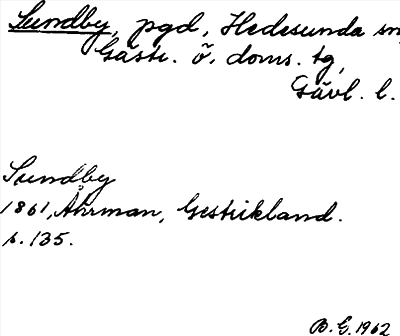 Sundby, pgd, Hedesunda sn,
Gästr. ö. doms. tg,
Gävl. l.
Sundby
1861, Åhrman, Gestrikland.
s. 135.
B. E. 1962